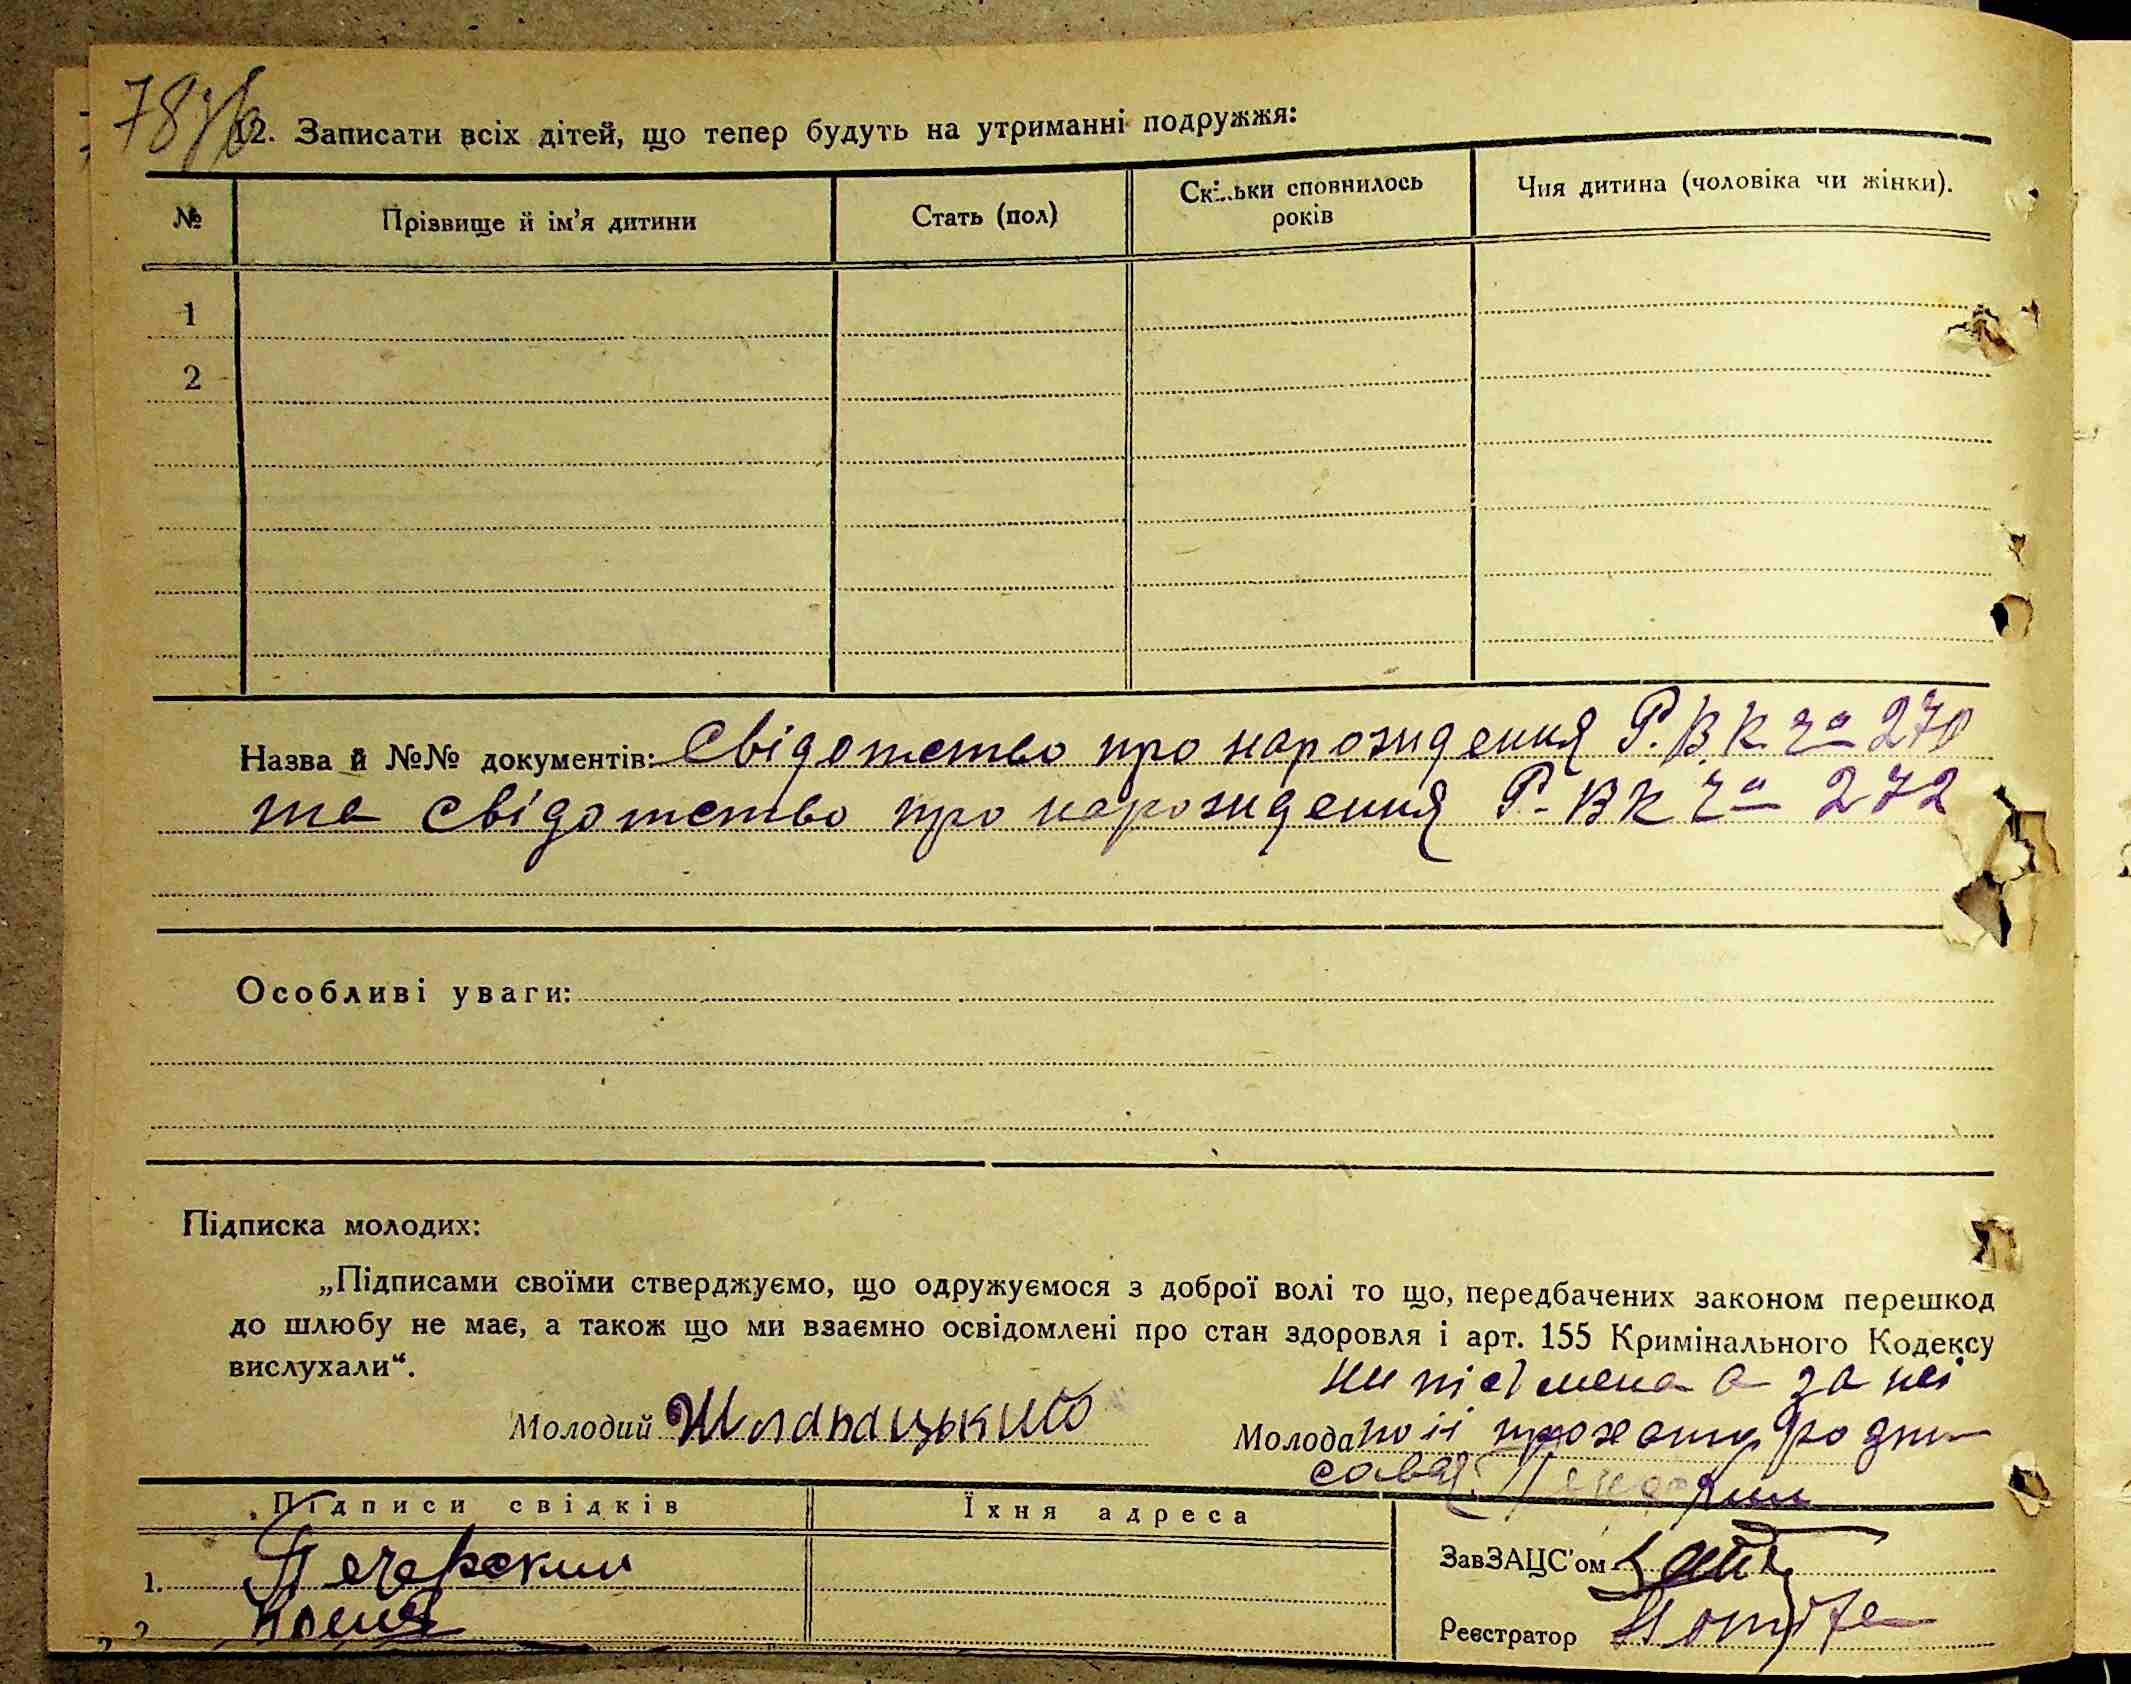 78
12. Записати всіх дітей, що тепер будуть на утриманні подружжя:
№ Прізвище й ім’я дитини Стать (пол) Скільки сповнилось років Чия дитина (чоловіка чи жінки).
1
2
Назва й №№ документів: Свідотство про нарождення Р.В.К. за 270
та свідотство про нарождення Р-ВК за 272
Особливі уваги:
Підписка молодих:
„Підписами своїми стверджуємо, що одружуємося з доброї волі то що, передбачених законом перешкод
до шлюбу не має, а також що ми взаємно освідомлені про стан здоровля і арт. 155 Кримінального Кодексу
вислухали“.
Молодий
Молода
Підписи свідків Їхня адреса
1. Печерский
2.
ЗавЗАЦС’ом
Реєстратор